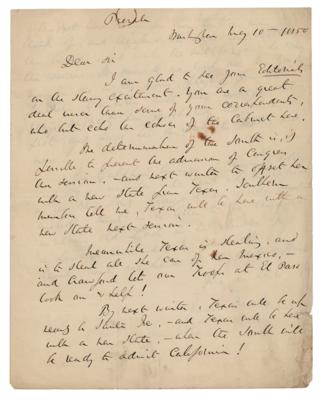 Private
Washington May 10 - 1850
Dear Sir
I am glad to see your Editorials
on the slavery excitement. You are a great
deal wiser than some of your correspondents,
who but echo the echoes of the Cabinet here.
The determination of the South is, if
possible to prevent the admission of
this session, - and next winter to offset her
with a new State from Texas. Southern
members tell me, Texas will be here with a
new State next session.
Meanwhile, Texas is stealing, and
is to steal all she can of New Mexico, -
and Crawford lets our Troops at El Paso
look on & help!
By next winter, Texas will be up
nearly to Santa Fe, - and Texas will be here
with a new State, - when the South will
be ready to admit California!